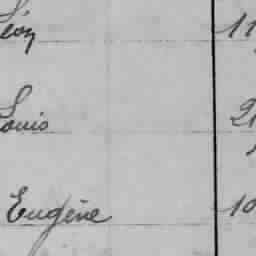 Léon 11
Louis 21
Eugène 10